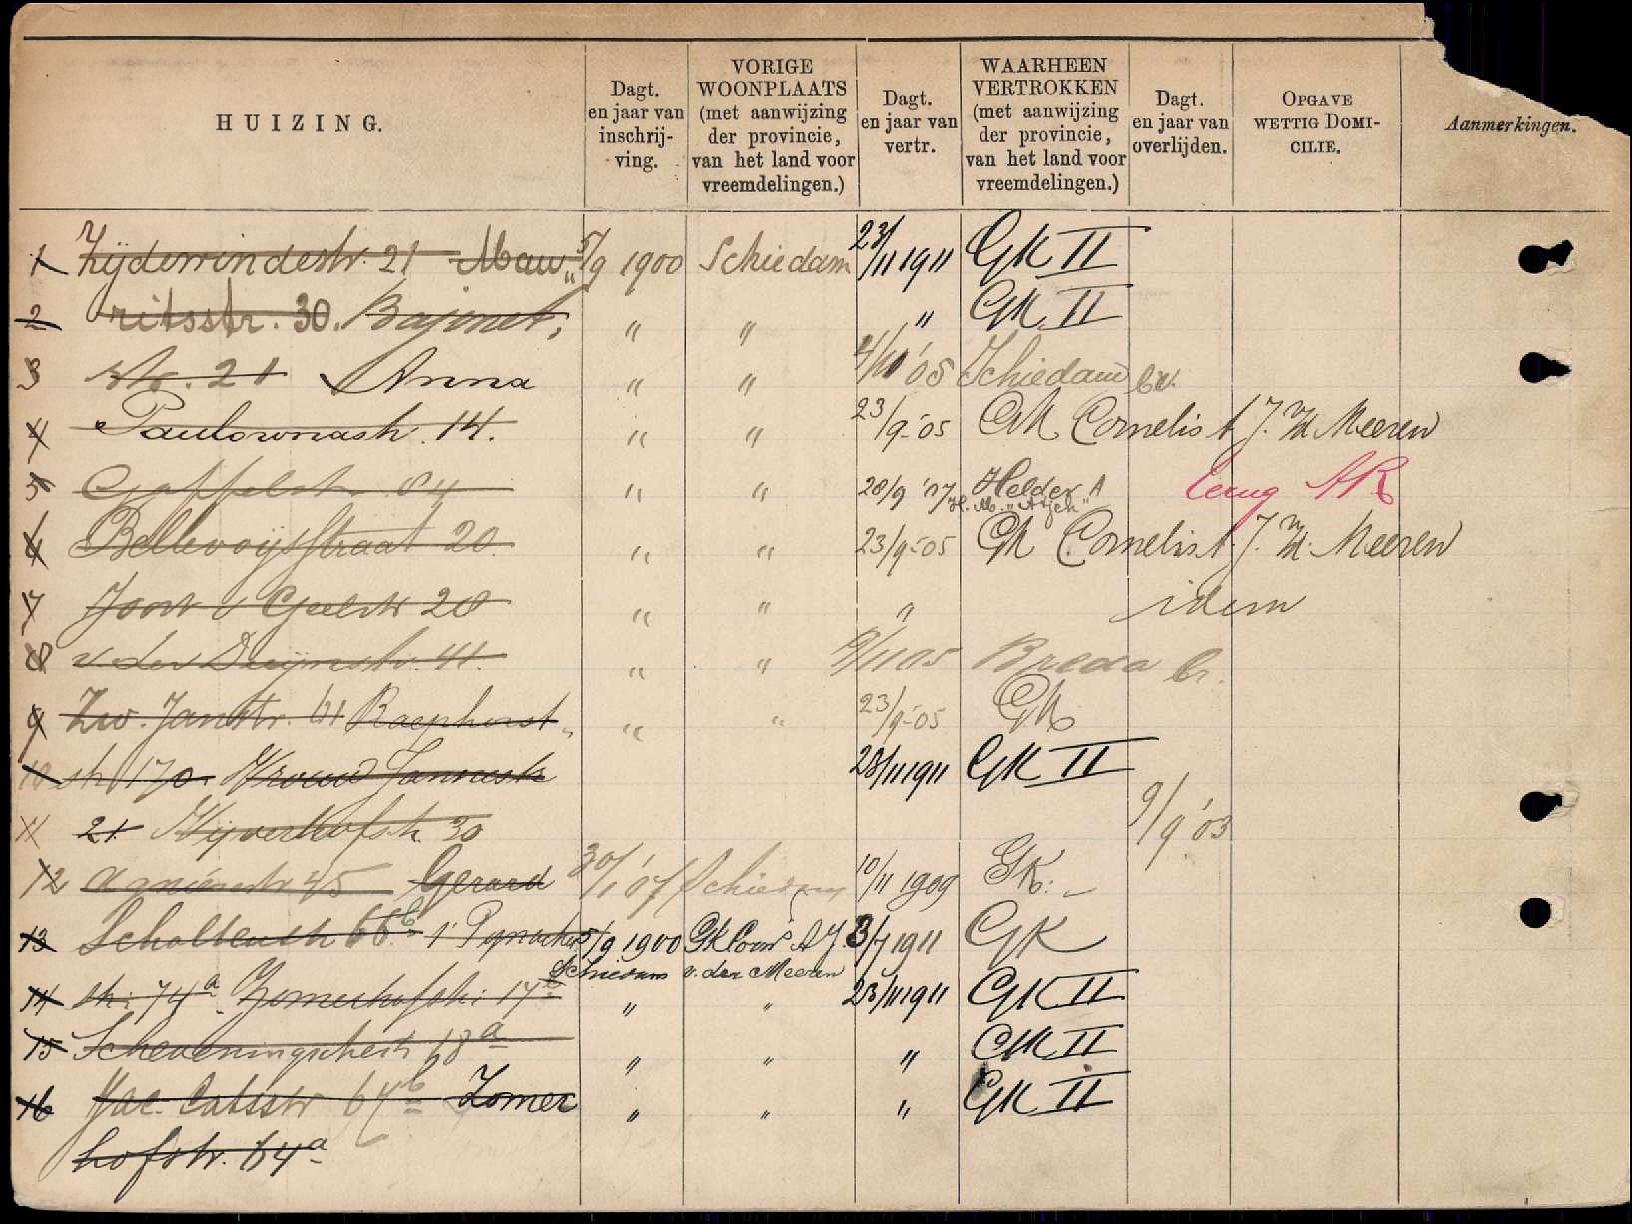 HUIZING.
Dagt. en jaar van inschrijving.
VORIGE WOONPLAATS (met aanwijzing der provincie, van het land voor vreemdelingen.)
Dagt. en jaar van vertr.
WAARHEEN VERTROKKEN (met aanwijzing der provincie, van het land voor vreemdelingen.)
Dagt. en jaar van overlijden.
OPGAVE WETTIG DOMICILIE.
Aanmerkingen.
1 Zijdewindestr. 21 Mau„ 5/9 1900 Schiedam 23/11 1911 GK II
2 ritsstr. 30. Bajonet, „ „ „ GK II
3 str. 21 Anna „ „ 4/10 '05 Schiedam
4 Paulownastr. 14. „ „ 23/9-05 GK Cornelis A J. v/d Meeren
5 Gaffelstr. 84 „ „ 28/9 '07 Helder A terug AK
H. M. „Atjeh"
6 Bellevoysstraat 20. „ „ 23/9-05 GK Cornelis A. J. v/d. Meeren
7 Joost v Geelstr 28 „ „ „ idem
8 v. der Duijnstr. 41. „ „ /11 05 Breda
9 Zw. Janstr. 61 Raephorst„ „ „ 23/9-05 GK
10 str 170. Vrouw Jannestr 28/11 1911 GK II
11 21. Vijverhofstr. 30 9/9 '03
12 45 Gerard 30/1 '07 Schiedam 10/11 1909 GK: –
13 Scholtenstr 66b 5/9 1900 GK A J 3/7 1911 GK
Schiedam v. der Meeren
14 str: 74a Zomerhofstr: 17 „ „ 23/11 1911 GK II
15 Scheveningschestr 18a „ „ „ GK II
16 Jac. Catsstr 64b Zomer „ „ „ GK II
hofstr. 64a